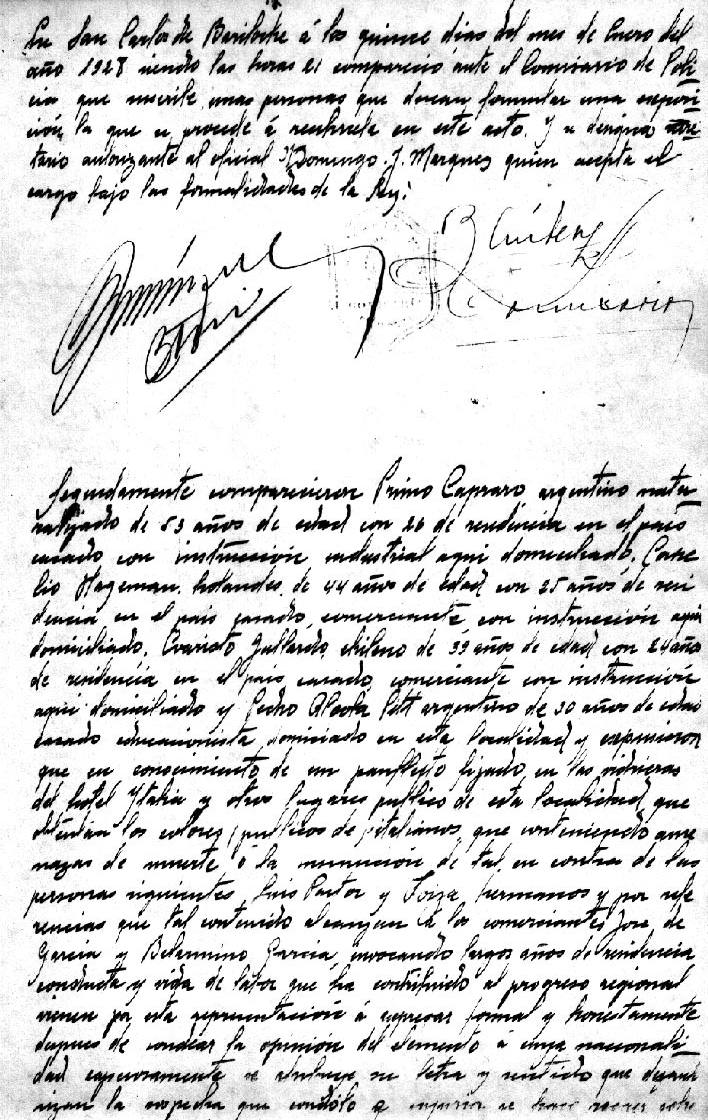 En San Carlos de Bariloche á los quince dias del mes de Enero del
año 1928 siendo las horas 21 compareció ante el Comisario de Poli
cia que suscribe, unas personas que desean formular una exposi
ción, la que se procede á recibirsela en este acto. Y se designa
tario autorizante al oficial Domingo J. Marques quien acepta el
cargo bajo las formalidades de la Ley:
Comisario
Seguidamente comparecieron Primo Capraro argentino natu
ralizado de 53 años de edad con 26 de residencia en el pais
casado con instrucción industrial aqui domiciliado,
lio Hageman. holandes de 44 años de edad con 25 años de resi
dencia en el pais casado, comerciante con instrucción aqui
domiciliado, Evaristo Gallardo chileno de 39 años de edad con 24 años
de residencia en el pais casado comerciante con instrucción
aqui domiciliado y Pedro argentino de 30 años de edad
casado educacionista, domiciado en esta localidad y expusieron
que en conocimiento de un panfleto fijado en las vidrieras
del hotel Italia y otros lugares publico de esta localidad, que
los colores, de italianos, que conteniendo ame
nazas de muerte ó la de tal en contra de las
personas siguientes, Luis Pastor y hermanos y por refe
rencias que tal contenido alcanzan á los comerciantes Jose de
Garcia y Belarmino Garcia, invocando largos años de residencia
conducta y vida de labor que ha contribuido al progreso regional
vienen por esta representación á expresar formal y honestamente
despues de sondear la opinión del elemento á cuya nacionali
dad se atribuye su letra y sentido que
la sospecha que